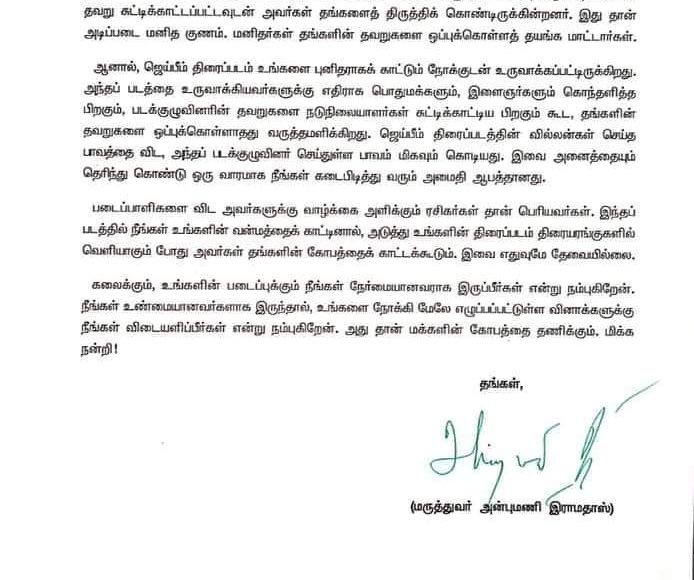 தவறு சுட்டிக்காட்டப்பட்டவுடன் அவர்கள் தங்களைத் திருத்திக் கொண்டிருக்கின்றனர். இது தான்
அடிப்படை மனித குணம். மனிதர்கள் தங்களின் தவறுகளை ஒப்புக்கொள்ளத் தயங்க மாட்டார்கள்.
ஆனால், ஜெய்பீம் திரைப்படம் உங்களை புனிதராகக் காட்டும் நோக்குடன் உருவாக்கப்பட்டிருக்கிறது.
அந்தப் படத்தை உருவாக்கியவர்களுக்கு எதிராக பொதுமக்களும், இளைஞர்களும் கொந்தளித்த
பிறகும், படக்குழுவினரின் தவறுகளை நடுநிலையாளர்கள் சுட்டிக்காட்டிய பிறகும் கூட, தங்களின்
தவறுகளை ஒப்புக்கொள்ளாதது வருத்தமளிக்கிறது. ஜெய்பீம் திரைப்படத்தின் வில்லன்கள் செய்த
பாவத்தை விட, அந்தப் படக்குழுவினர் செய்துள்ள பாவம் மிகவும் கொடியது. இவை அனைத்தையும்
தெரிந்து கொண்டு ஒரு வாரமாக நீங்கள் கடைபிடித்து வரும் அமைதி ஆபத்தானது.
படைப்பாளிகளை விட அவர்களுக்கு வாழ்க்கை அளிக்கும் ரசிகர்கள் தான் பெரியவர்கள். இந்தப்
படத்தில் நீங்கள் உங்களின் வன்மத்தைக் காட்டினால், அடுத்து உங்களின் திரைப்படம் திரையரங்குகளில்
வெளியாகும் போது அவர்கள் தங்களின் கோபத்தைக் காட்டக்கூடும். இவை எதுவுமே தேவையில்லை.
கலைக்கும், உங்களின் படைப்புக்கும் நீங்கள் நேர்மையானவராக இருப்பீர்கள் என்று நம்புகிறேன்.
நீங்கள் உண்மையானவர்களாக இருந்தால், உங்களை நோக்கி மேலே எழுப்பப்பட்டுள்ள வினாக்களுக்கு
நீங்கள் விடையளிப்பீர்கள் என்று நம்புகிறேன். அது தான் மக்களின் கோபத்தை தணிக்கும். மிக்க
நன்றி!
தங்கள்,
(மருத்துவர் அன்புமணி இராமதாஸ்)